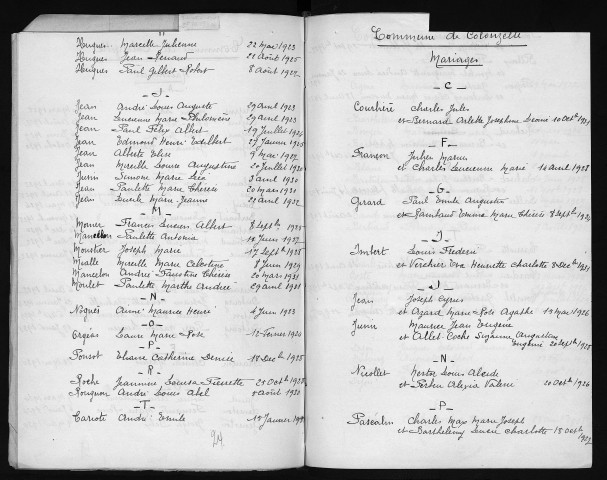 Hugues Marcelle Julienne 22 Mai 1923
Hugues Jean Renaud 21 Août 1925
Hugues Paul Gilbert Robert 8 Août 1927
- J -
Jean André Louis Auguste 29 avril 1923
Jean Lucienne Marie Philomène 29 avril 1923
Jean Paul Félix Albert 19 Juillet 1924
Jean Edmond Henri Edilbert 27 Janvier 1925
Jean Alberte Elise 9 Mai 1927
Jean Mireille Louise Augustine 20 Juillet
Junin Simone Marie 3 avril 1930
Jean Paulette Marie Thérèse 20 mars 1931
Jean Marie Jeanne 21 avril 1932
- M -
Francis Lucien Albert 8 Septbre 1925
Manellon Paulette Antonia 14 Juin 1927
Moustier Joseph Marie 17 Septbre 1925
Mialle Mireille Marie Célestine 8 Juin 1929
Manelon André Faustin Thérèse 20 mars 1931
Moulet Paulette Marthe Andrée 29 avril 1931
- N -
Nogués Aimé Maurice Henri 4 Juin 1923
- O -
Orgéas Laure Marie Rose 12 Février 1924
- P -
Ponsot Eliane Catherine Denise 18 Decbre 1925
- R -
Roche Jeannine Louise Pierrette 25 Octbre 1928
Rougnon André Louis Abel 8 août 1930
- T -
Cariote André Emile 15 Janvier
24
Commune de Colonzelle
Mariages
- C -
Courbière Charles Jules
et Bernard Arlette Josephine Léonie 10 Octbre 1931
- F -
Françon Julien Marius
et Charles Lucienne Marie 14 avril 1928
- G -
Girard Paul Emile Augustin
et Rambaud Emma Marie Thérèse 8 Septbre
- I -
Imbert Louis Frédéric
et Verchier Eva Henriette Charlotte 3 Decbre 1921
- J -
Jean Joseph Cyrus
et Azard Marie Rose Agathe 13 Mai 1926
Junin Maurice Jean Eugène
et Allet Coche Suzanne Augustine
Eugénie 20 Septbre 1928
- N -
Nicollet Nestor Louis Alcide
et Alexia Valérie 20 Octbre 1926
- P -
Pascalin Charles Max Marie Joseph
et Barthélemy Lucie Charlotte 15 Octbre
1927